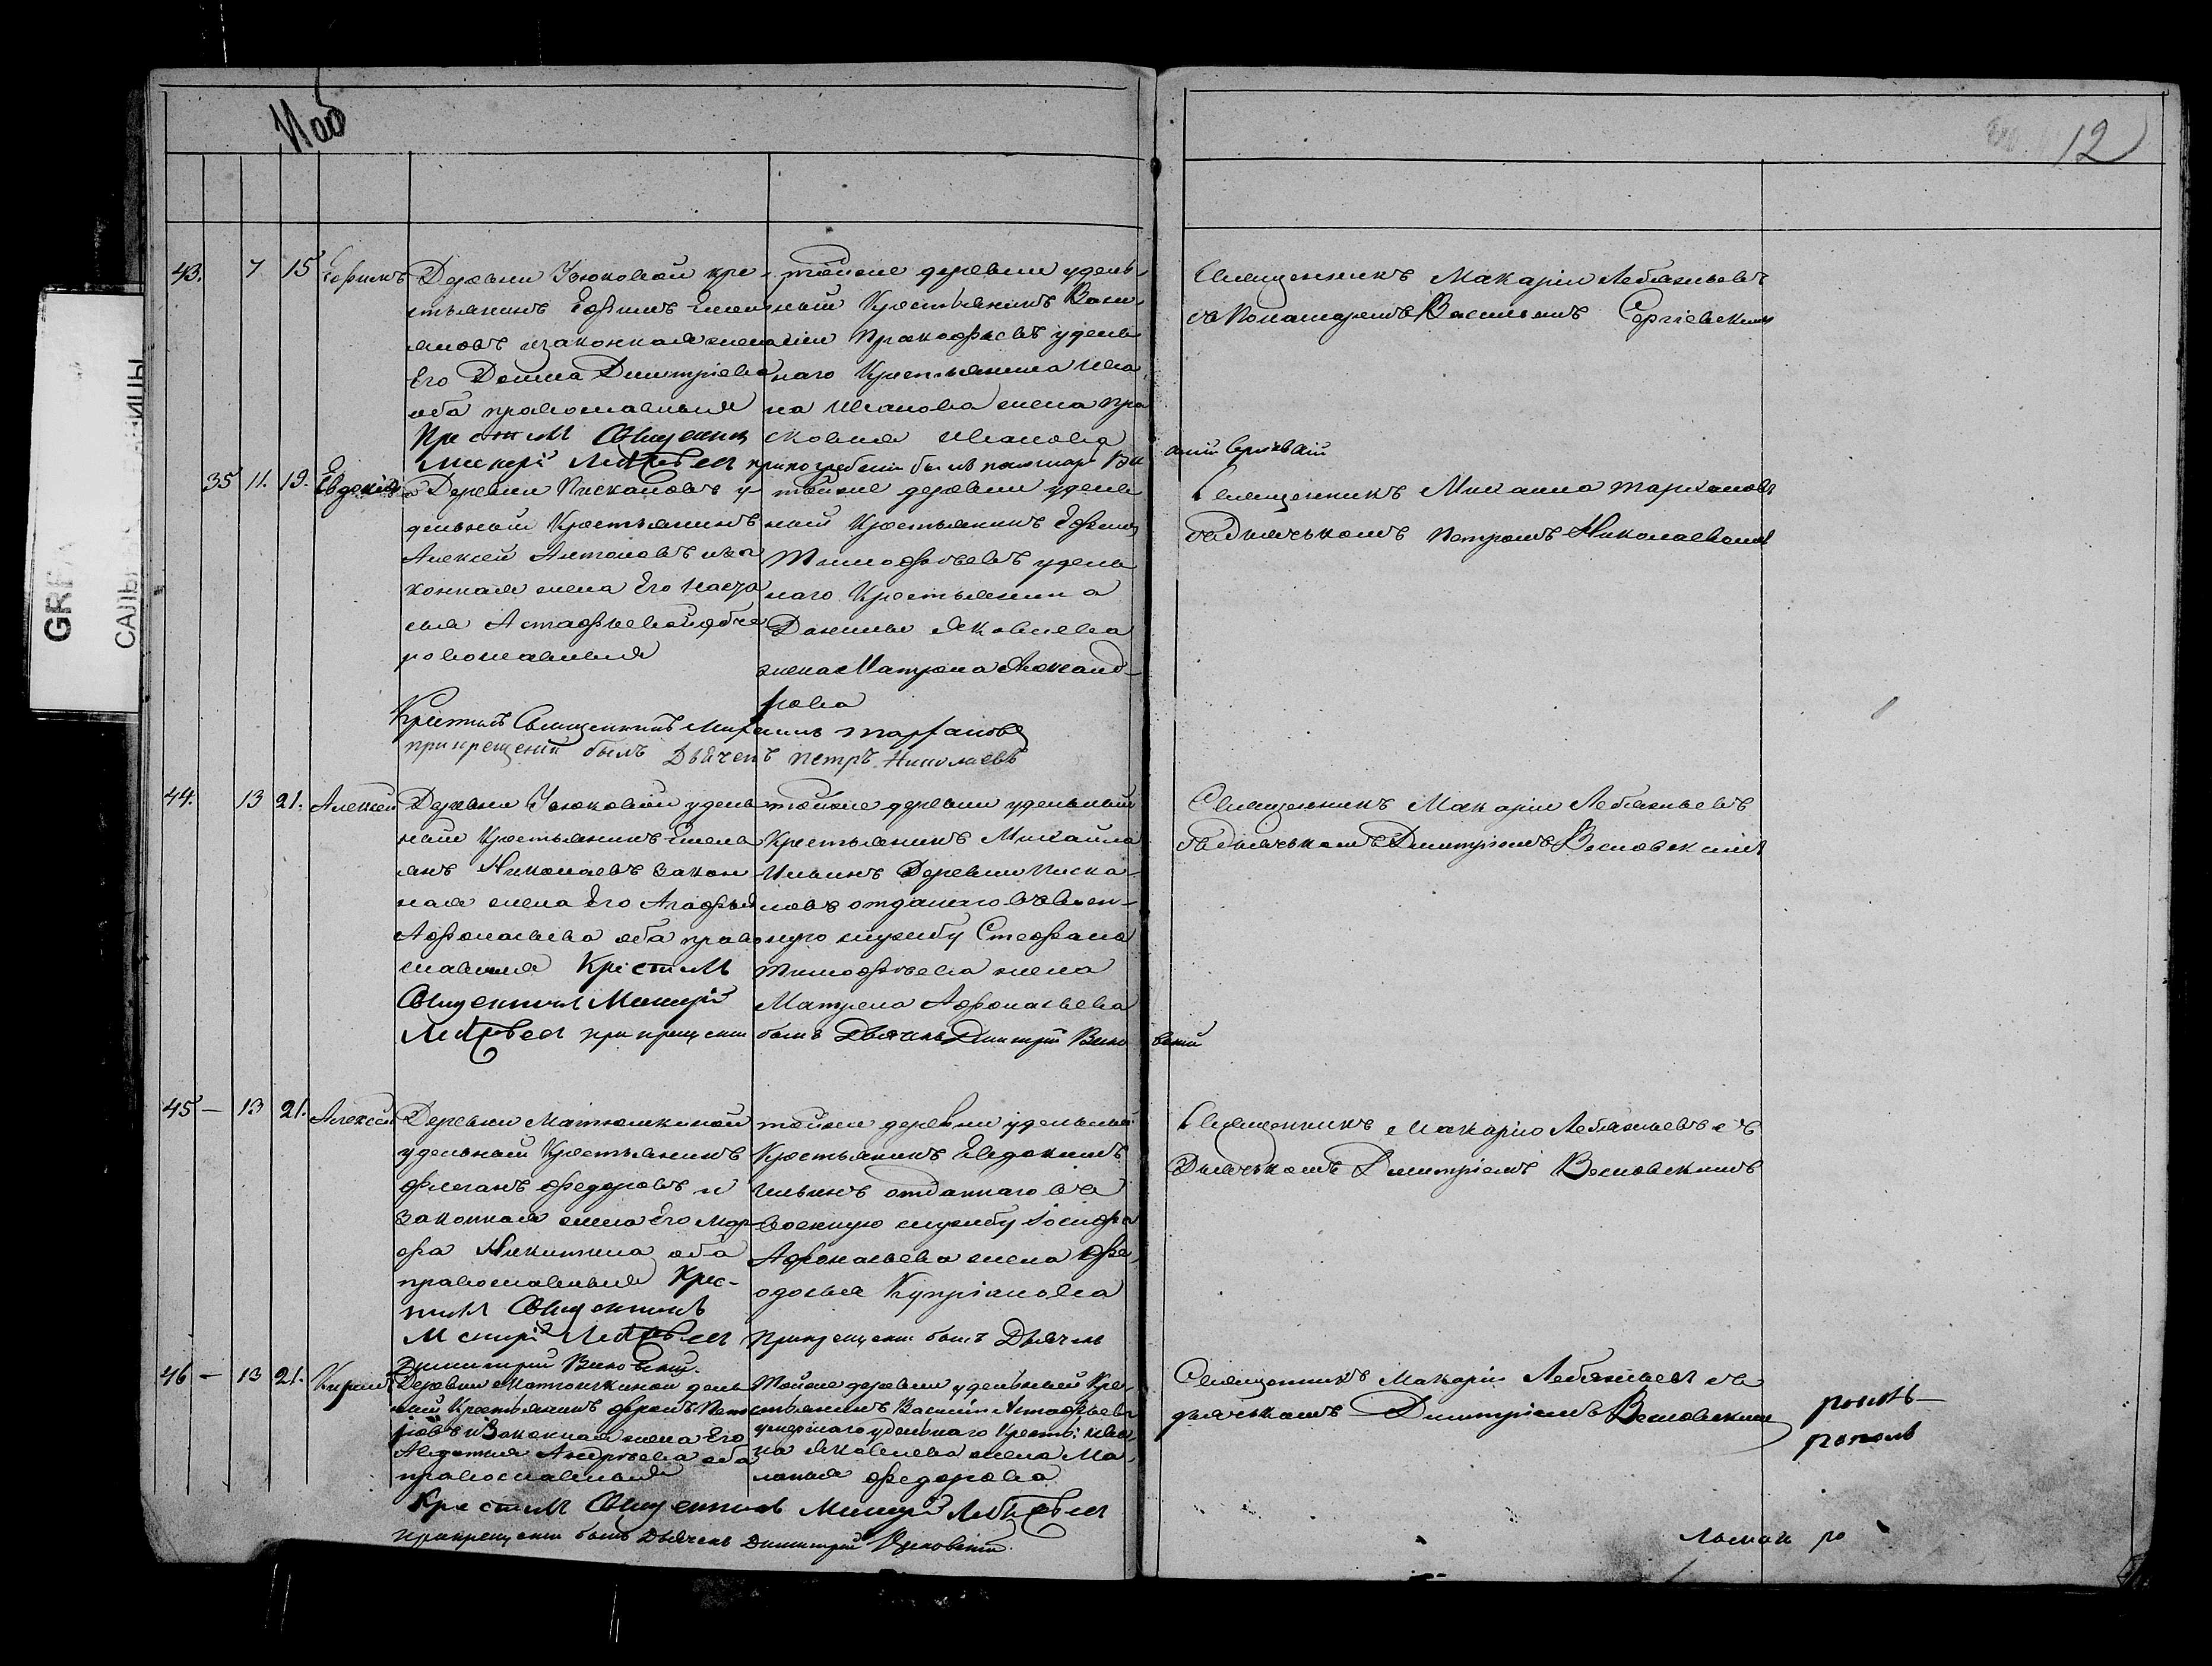 12
43. 7 15 Ефимъ
Деревни Узюковой кре-
стьянинъ Ефимъ Емель
яновъ изаконная жена
Его Домна Димитріева
оба православныя
Крестилъ Священникъ
Макарій
тойже деревни удель-
ный Крестьянинъ Васи-
лій Прокофьевъ удель
наго Крестьянина Ива
на Иванова жена пра
сковья Иванова
Священникъ Макарій Лебяжьевъ
съ Пономаремъ Васильемъ Сергіевскимъ
35 11. 19. Евдокія
Деревни Пискаловъ у-
дельный Крестьянинъ
Алексей Антоновъ иза
конная жена Его Наста
сья Астафьева обаче
ровославныя
тойже деревни удель
ный Крестьянинъ Ефимъ
Тимофѣевъ удель
наго Крестьянина
Данилы Яковлева
жена Матрена Александ-
рова
Священникъ Михаилъ Тарханов
съ Дьячькомъ Петромъ Николаевымъ
Крестилъ Священникъ Михаилъ Тарханов
при крещеніи былъ Дьячекъ Петръ Николаевъ
44. 13 21. Алексей
Деревни Узюковой удель
ный Крестьянинъ Емель
янъ Николаевъ закон
ная жена Его Агафья
Афонасьева оба право
славныя Крестилъ
Священникъ Макарій
при крещеніи
тойже деревни удельный
Крестьянинъ Михайла
Ильинъ Деревни Писка-
ловъ отданаго въ воен-
ную службу Стефана
Тимофѣева жена
Матрена Афонасьева
былъ Дьячекъ Димитрій
Священникъ Макарій Лебяжьевъ
съ дьячькомъ Димитріемъ Весновскимъ
45 — 13 21. Алексей
Деревни Матюшкиной
удельный Крестьянинъ
Флеганъ Федоровъ и
законная жена Его Мар
фа Никитина оба
православныя Крес-
тилъ Священникъ
Макарій
Димитрій
тойже деревни удельный
Крестьянинъ Евдокимъ
Ильинъ отданнаго въ
военную службу Іосифа
Афонасьева жена Фе
одосья Купріанова
При крещеніи былъ Дьячекъ
Священникъ Макарій Лебяжьевъ съ
Дьячькомъ Димитріемъ Весновскимъ
46 — 13 21. Кирилъ
Деревни Матюшкиной удель
ный Крестьянинъ Фролъ Пет
ровъ и Законная жена Его
Авдотья Андреева оба
православныя
Тойже деревни удельный Кре
стьянинъ Василій Астафьевъ
умершаго удельнаго Крест: Ива
на Яковлева жена Ма
ланья Федорова
Священникъ Макарій Лебяжьевъ съ
дьячькомъ Димитріемъ Весновскимъ
Крестилъ Священникъ Макарій
При крещеніи былъ Дьячекъ Димитрій